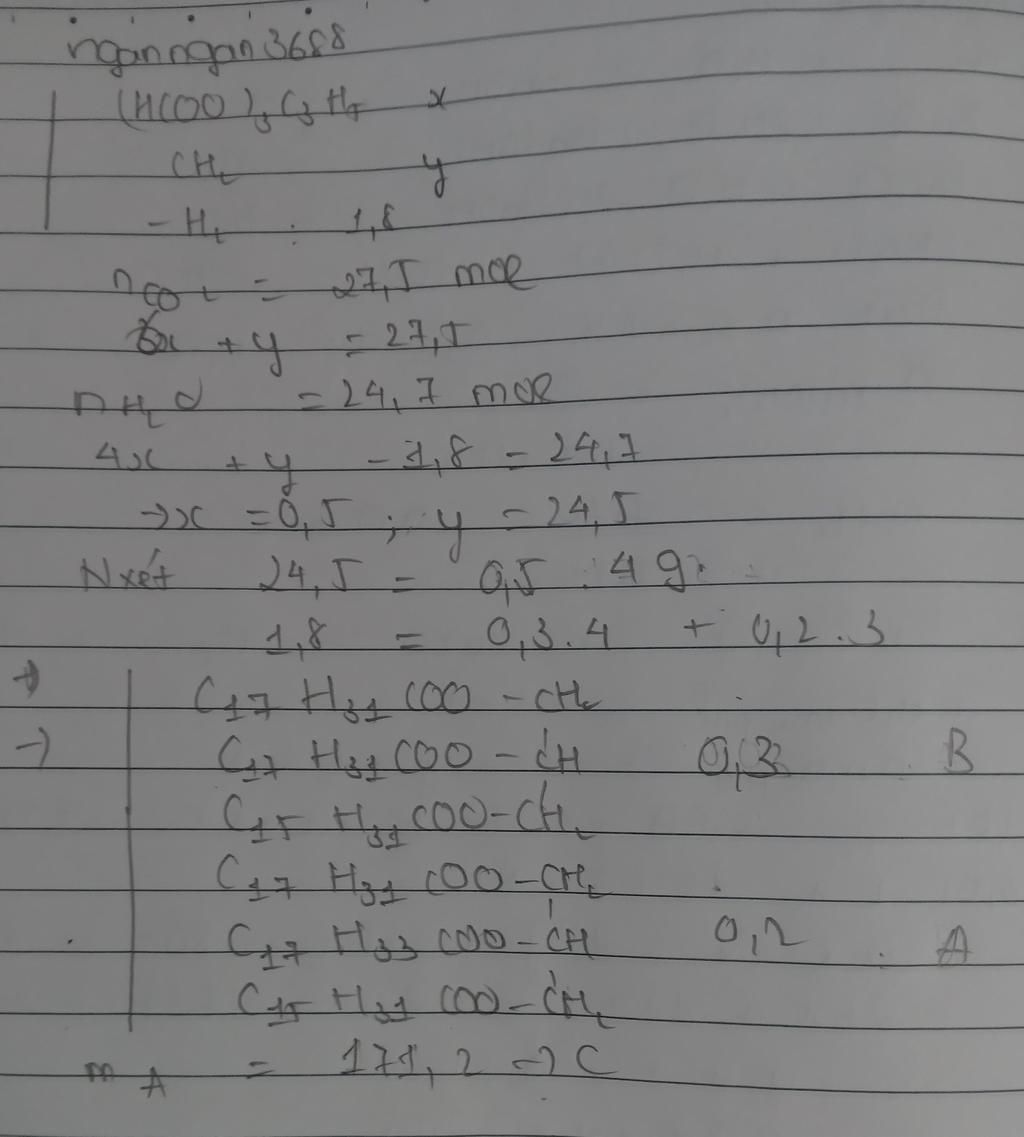 nganngan3688
(HCOO)₃C₃H₅ x
CH₂ y
- H₂ : 1,8
nCO₂ = 27,5 mol
6x + y = 27,5
nH₂O = 24,7 mol
4x + y - 1,8 = 24,7
→x = 0,5 ; y = 24,5
Nxét 24,5 = 0,5 . 49
1,8 = 0,3.4 + 0,2.3
→ C₁₇H₃₁COO-CH₂
→ C₁₇H₃₁COO-CH 0,3 B
C₁₅H₃₁COO-CH₂
C₁₇H₃₁COO-CH₂
C₁₇H₃₃COO-CH 0,2 A
C₁₅H₃₁COO-CH₂
mA = 171,2 → C